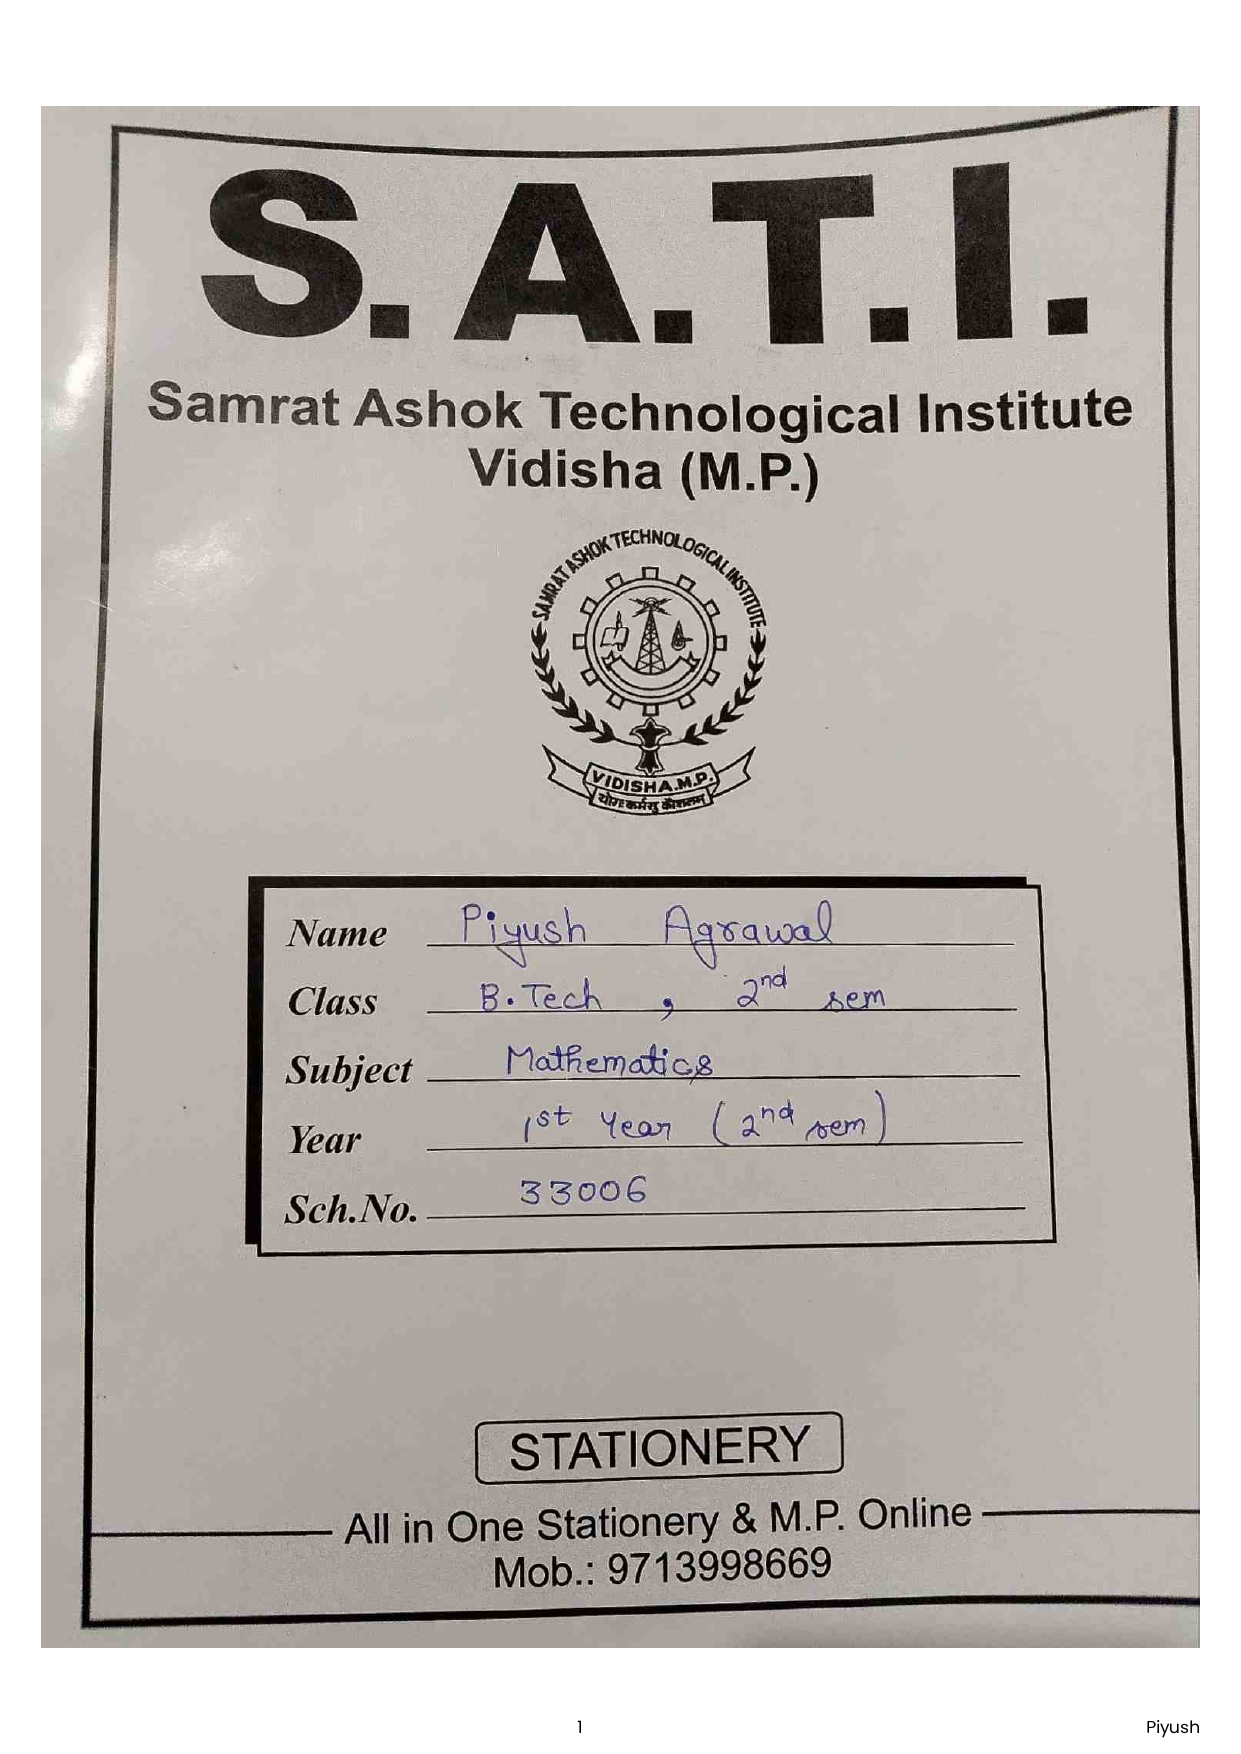 S.A.T.I.
Samrat Ashok Technological Institute
Vidisha (M.P.)
SAMRAT ASHOK TECHNOLOGICAL INSTITUTE
VIDISHA.M.P.
योगः कर्मसु कौशलम्
Name Piyush Agrawal
Class B.Tech , 2nd sem
Subject Mathematics
Year 1st Year (2nd sem)
Sch.No. 33006
STATIONERY
All in One Stationery & M.P. Online
Mob.: 9713998669
1 Piyush